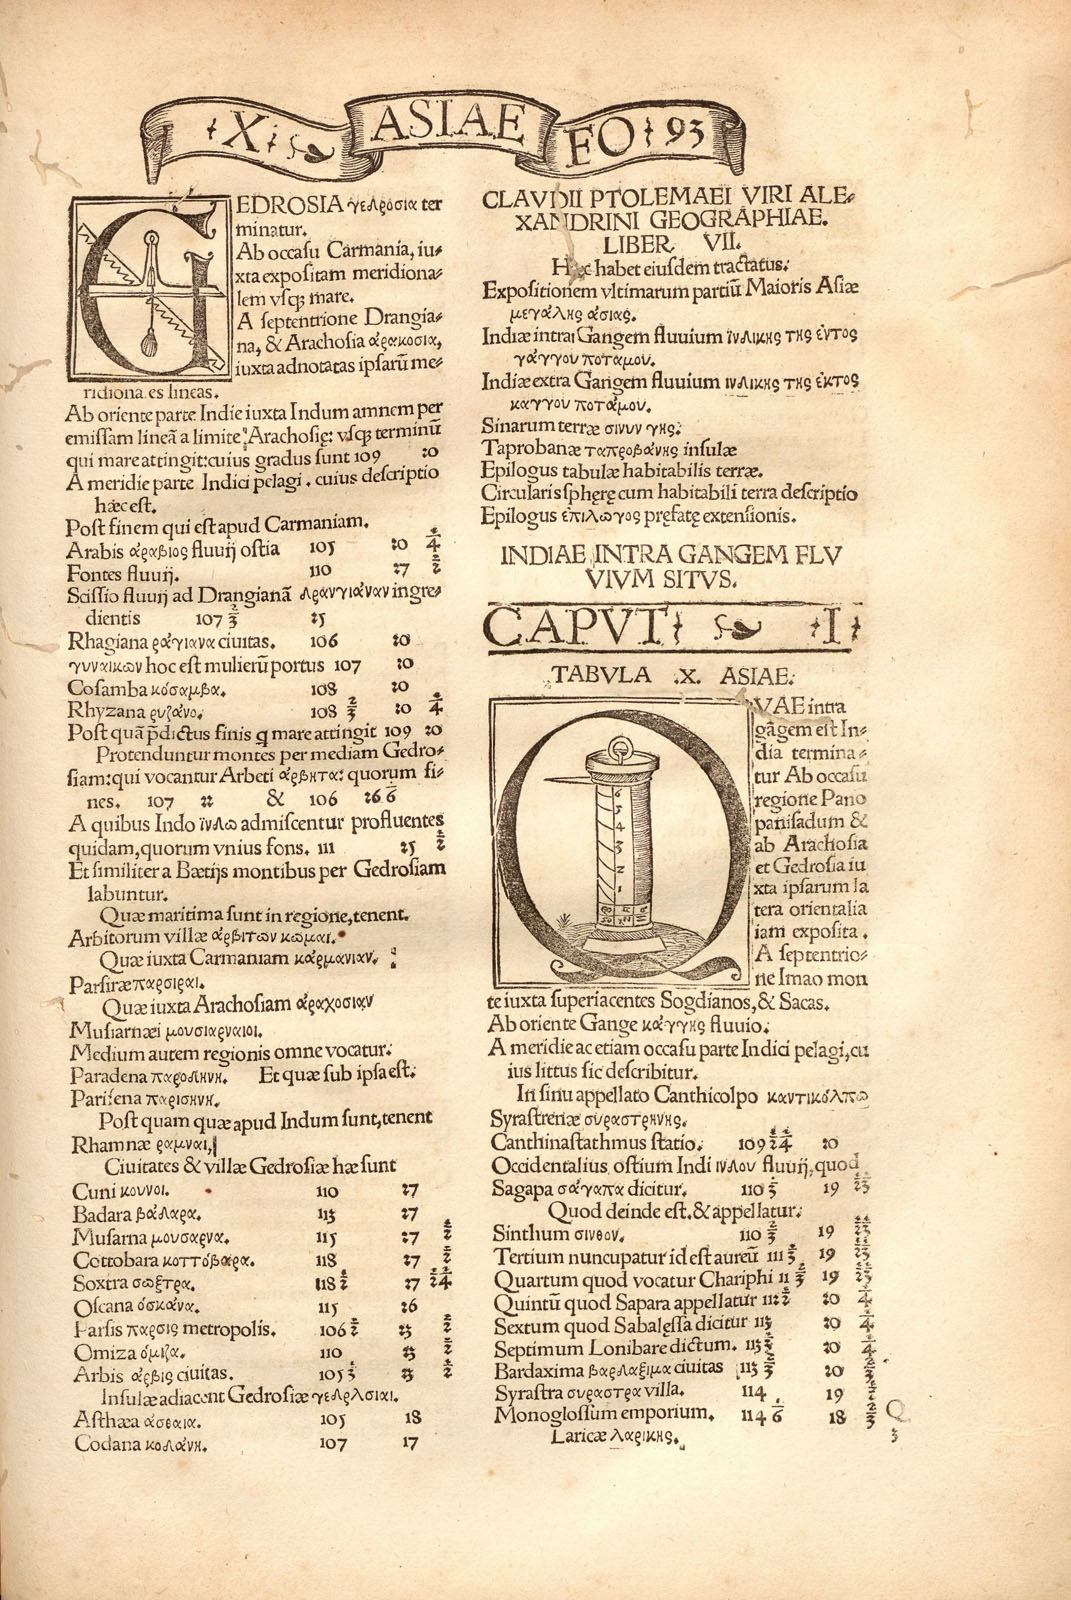 X ASIAE FO 93
GEDROSIA γεδροσια ter
minatur.
Ab occasu Carmania, iu-
xta expositam meridiona-
lem vsq; mare.
A septentrione Drangia-
na, & Arachosia ἀρακοσια,
iuxta adnotatas ipsarū me-
ridiona es lineas.
Ab oriente parte Indie iuxta Indum amnem per
emissam lineā a limite Arachosię: vsq; terminū
qui mare attingit: cuius gradus sunt 109 20
A meridie parte Indici pelagi . cuius descriptio
hæc est.
Post finem qui est apud Carmaniam.
Arabis ἀραβιος fluuij ostia 105 20 1/4
Fontes fluuij. 110 27 1/2
Scissio fluuij ad Drangianā δρανγιάναν ingre-
dientis 107 2/3 25
Rhagiana ραγιανα ciuitas. 106 20
γυναικων hoc est mulierū portus 107 20
Cosamba κόσαμβα. 108 20
Rhyzana ρυζάνο. 108 2/3 20 1/4
Post quā p̄dictus finis q mare attingit 109 20
Protenduntur montes per mediam Gedro-
siam: qui vocantur Arbeti ἀρβητα: quorum fi-
nes. 107 22 & 106 26 1/6
A quibus Indo ἰνδω admiscentur profluentes
quidam, quorum vnius fons. 111 25 1/2
Et similiter a Bætijs montibus per Gedrosiam
labuntur.
Quæ maritima sunt in regione, tenent.
Arbitorum villæ ἀρβιτων κωμαι.
Quæ iuxta Carmaniam κάρμανιαν.
Parsiræ παρσιραι.
Quæ iuxta Arachosiam ἀραχοσιαν
Musiarnæi μουσιαρναιοι.
Medium autem regionis omne vocatur:
Paradena παροδηνη. Et quæ sub ipsa est:
Parisena παρισηνη.
Post quam quæ apud Indum sunt, tenent
Rhamnæ ραμναι,
Ciuitates & villæ Gedrosiæ hæ sunt
Cuni κουνοι. 110 27
Badara βάδαρα. 113 27
Musarna μουσαρνα. 115 27 1/2
Cottobara κοττόβαρα. 118 27 1/2
Soxtra σωξτρα. 118 1/2 27 1/2 1/4
Oscana ὀσκάνα. 115 26
Parsis παρσις metropolis. 106 1/2 23 1/2
Omiza ὀμιζα. 110 23 1/2
Arbis ἀρβις ciuitas. 105 1/3 23 1/2
Insulæ adiacent Gedrosiæ
Asthæa ἀσθαια. 105 18
Codana κοδάνη. 107 17
CLAVDII PTOLEMAEI VIRI ALE-
XANDRINI GEOGRAPHIAE.
LIBER VII.
Hæc habet eiusdem tractatus:
Expositionem vltimarum partiū Maioris Asiæ
μεγάλης ἀσιας.
Indiæ intrai Gangem fluvium ἰνδικης της ἐντος
γάγγου ποταμου.
Indiæ extra Gangem fluvium ινδικης της ἐκτος
καγγου ποτάμου.
Sinarum terræ σινυν γης:
Taprobanæ ταπροβάνης insulæ
Epilogus tabulæ habitabilis terræ.
Circularis sphęrę cum habitabili terra descriptio
Epilogus ἐπιλωγος pręfatę extensionis.
INDIAE INTRA GANGEM FLV
VIVM SITVS.
CAPVT I
TABVLA .X. ASIAE.
QVAE intra
gāgem est In-
dia termina-
tur Ab occasu
regione Pano
panisadum &
ab Arachosia
et Gedrosia iu
xta ipsarum la
tera orientalia
iam exposita .
A septentrio-
ne Imao mon
te iuxta superiacentes Sogdianos, & Sacas.
Ab oriente Gange κάγγης fluvio:
A meridie ac etiam occasu parte Indici pelagi, cu
ius littus sic describitur.
In sinu appellato Canthicolpo καντικόλπω
Syrastrenæ συραστρηνης.
Canthinastathmus statio. 109 1/2 1/4 20
Occidentalius, ostium Indi ινδου fluuij, quod
Sagapa σάγαπα dicitur. 110 1/3 19
Quod deinde est. & appellatur:
Sinthum σινθον. 110 2/3 19
Tertium nuncupatur id est aureū 111 1/3 19
Quartum quod vocatur Chariphi 11 2/3 19
Quintū quod Sapara appellatur 112 1/2 20 1/4
Sextum quod Sabalęssa dicitur 113 20 1/4
Septimum Lonibare dictum. 113 20 1/4
Bardaxima βαρδαξιμα ciuitas 113 2/3 20
Syrastra συραστρα villa. 114 19 1/2
Monoglossum emporium. 114 1/6 18 2/3
Laricæ λαρικης.
Q
3